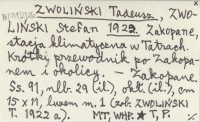 ZWOLIŃSKI Tadeusz, ZWO-
LIŃSKI Stefan 1922. Zakopane,
stacja klimatyczna w Tatrach.
Krótki przewodnik po Zakopa-
nem i okolicy. — Zakopane.
Ss. 91, nlb. 29 (il), okł. (il), cm
15 x 11, luzem m. 1 (zob. ZWOLIŃSKI
T. 1922 a). MT, WHP. * T, P.